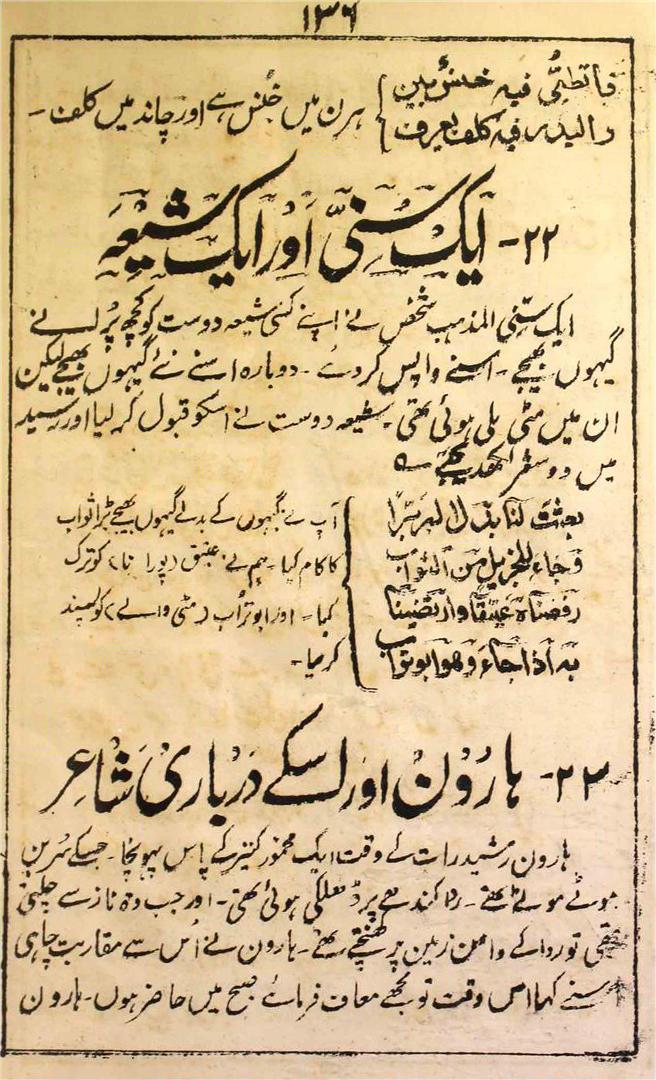 ۱۳۶
فا لظبی فیه خنس بین
والبدر فیه کلف یعرف
ہرن میں خُنس ہے اور چاند میں کلف۔
۲۲- ایک سُنّی اور ایک شیعہ
ایک سنی المذہب شخص نے اپنے کسی شیعہ دوست کو کچھ پُرانے
گیہوں بھیجے۔ اسنے واپس کردئے۔ دوبارہ اسنے نئے گیہوں بھیجے لیکن
ان میں مٹی ملی ہوئی تھی۔ شیعہ دوست نے اسکو قبول کر لیا اور رسید
میں دو شعر لکھدیئے ؎
بعثت لنا بذل البر برا
رجاء للجزیل من الثواب
رفضناہ عتیقا وارتضینا
بہ اذا جاء وھو ابو تراب
آپ نے گیہوں کے بدلے گیہوں بھیجے بڑا ثواب
کا کام کیا۔ ہم نے عتیق (پورانا) کو ترک
کیا۔ اور ابو تراب (مٹی والے) کو پسند
کرلیا۔
۲۳- ہارون اور اسکے درباری شاعر
ہارون رشید رات کے وقت ایک مخمور کنیز کے پاس پہونچا۔ جسکے سرین
موٹے موٹے تھے۔ ردا کندھے پر ڈھلکی ہوئی تھی۔ اور جب وہ ناز سے چلتی
تھی تو ردا کے دامن زمین پر کھنچتے تھے۔ ہارون نے اُس سے مقاربت چاہی
اسنے کہا اس وقت تو مجھے معاف فرمائے صبح میں حاضر ہوں۔ ہارون